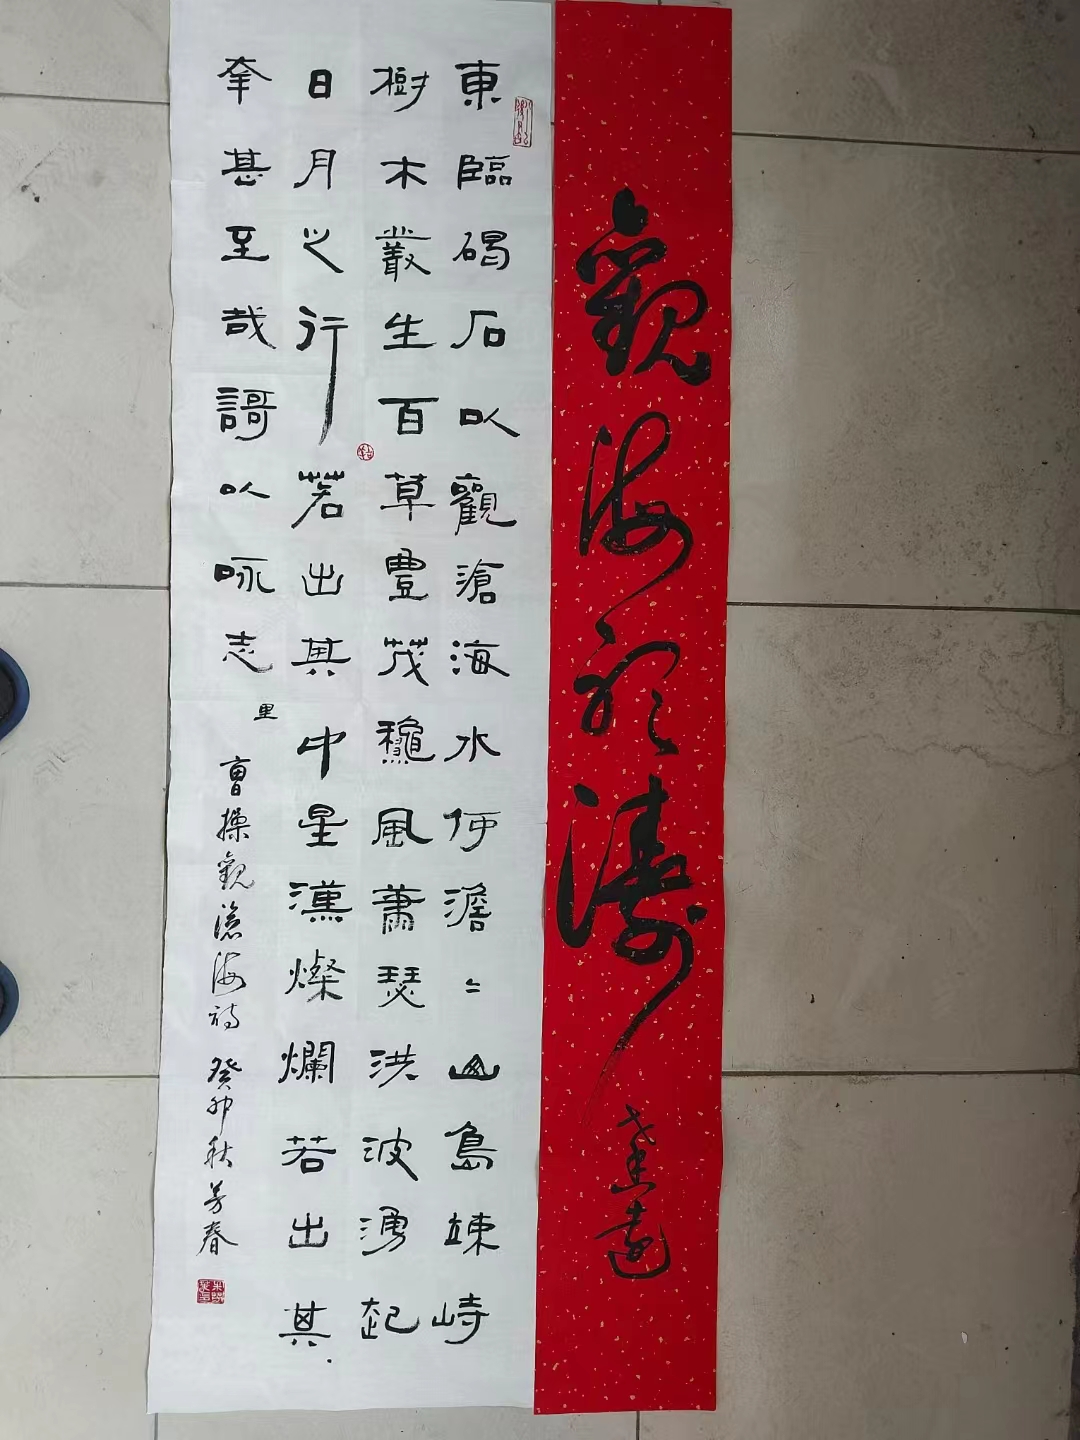 觀海聽濤
東臨碣石以觀滄海水何澹〻山島竦峙
樹木叢生百草豐茂龝風蕭瑟洪波湧起
日月之行若出其中星漢燦爛若出其
幸甚至哉謌以咏志
里
曹操觀滄海詩 癸卯秋芳春